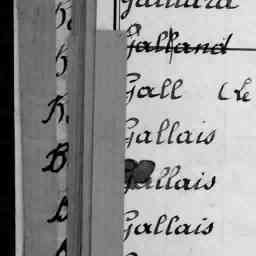 Gaillard
Galland
Gall (Le
Gallais
Gallais
Gallais